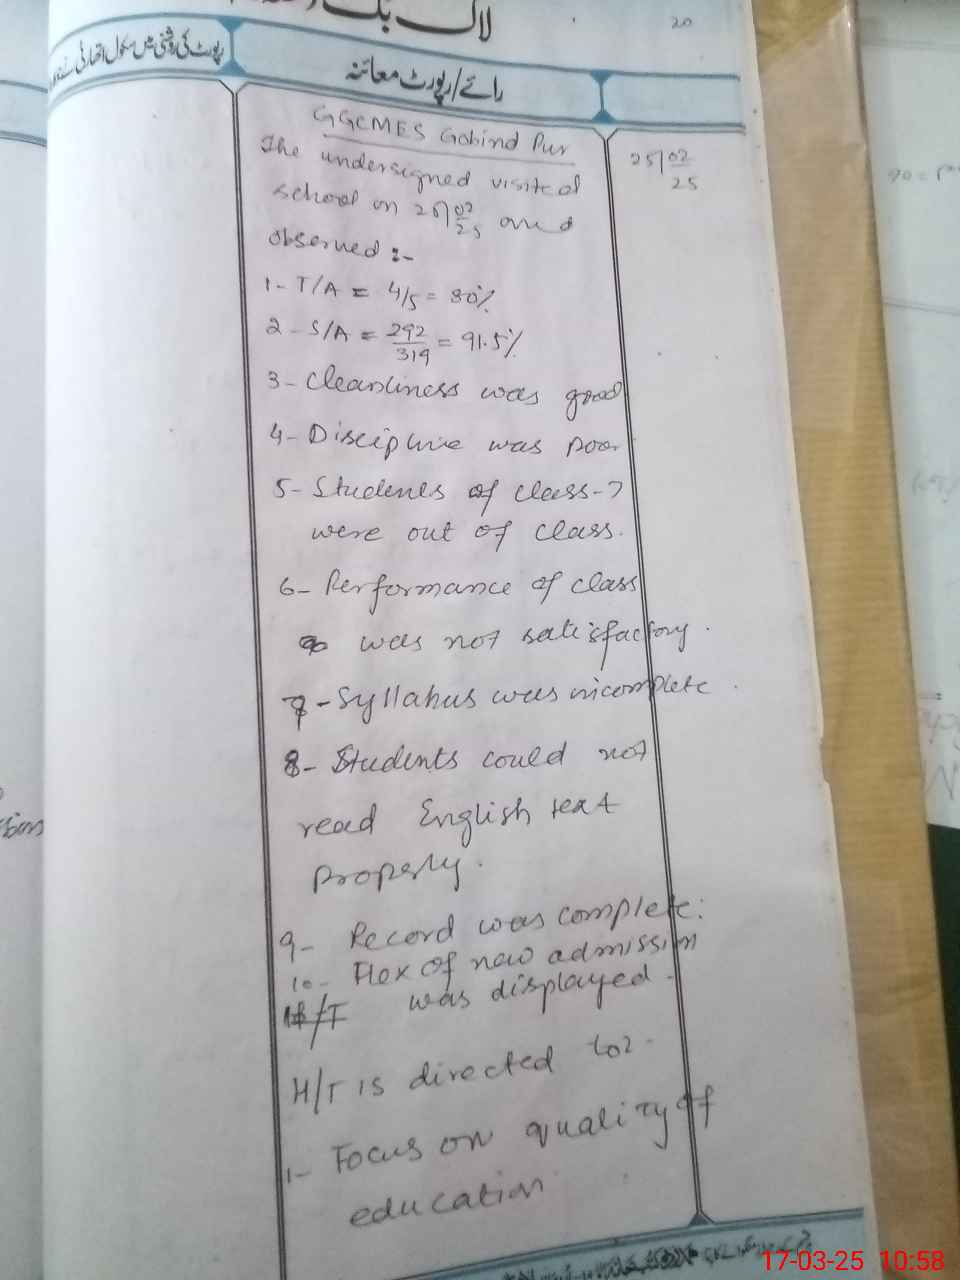 لاگ بک
20
رائے/رپورٹ معائنہ
رپورٹ کی روشنی میں سکول اتھارٹی
GGCMES Gobind Pur
25/02/25
The undersigned visited
school on 25/02/25 and
observed :-
1- T/A = 4/5 = 80%
2- S/A = 292/319 = 91.5%
3- Cleanliness was good
4- Discipline was poor
5- Students of class-7
were out of class.
6- Performance of class
was not satisfactory.
7- Syllabus was incomplete.
8- Students could not
read English text
properly.
9- Record was complete.
10- Flex of new admission
was displayed.
H/T is directed to:-
1- Focus on quality of
education
17-03-25 10:58